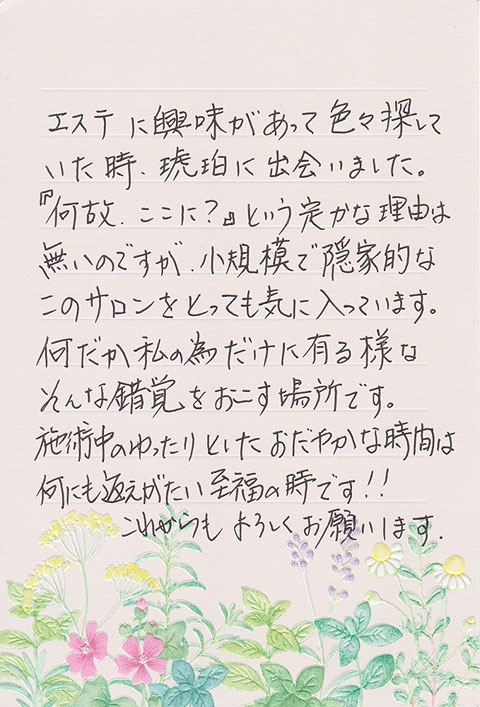 エステに興味があって色々探して
いた時、琥珀に出会いました。
『何故、ここに?』という定かな理由は
無いのですが、小規模で隠家的な
このサロンをとっても気に入っています。
何だか私の為だけに有る様な
そんな錯覚をおこす場所です。
施術中のゆったりとしたおだやかな時間は
何にも返えがたい至福の時です!!
これからもよろしくお願いします.